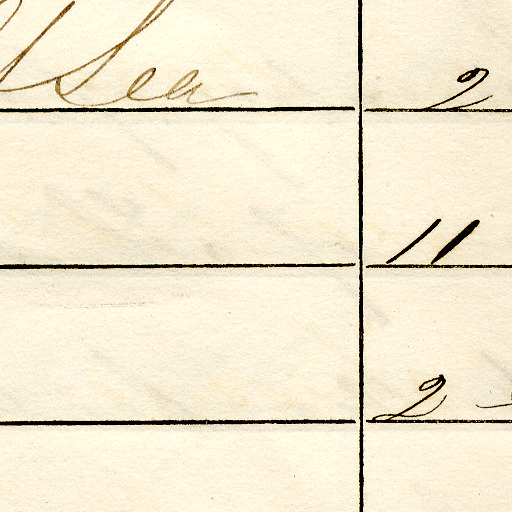 Sea 2
11
2